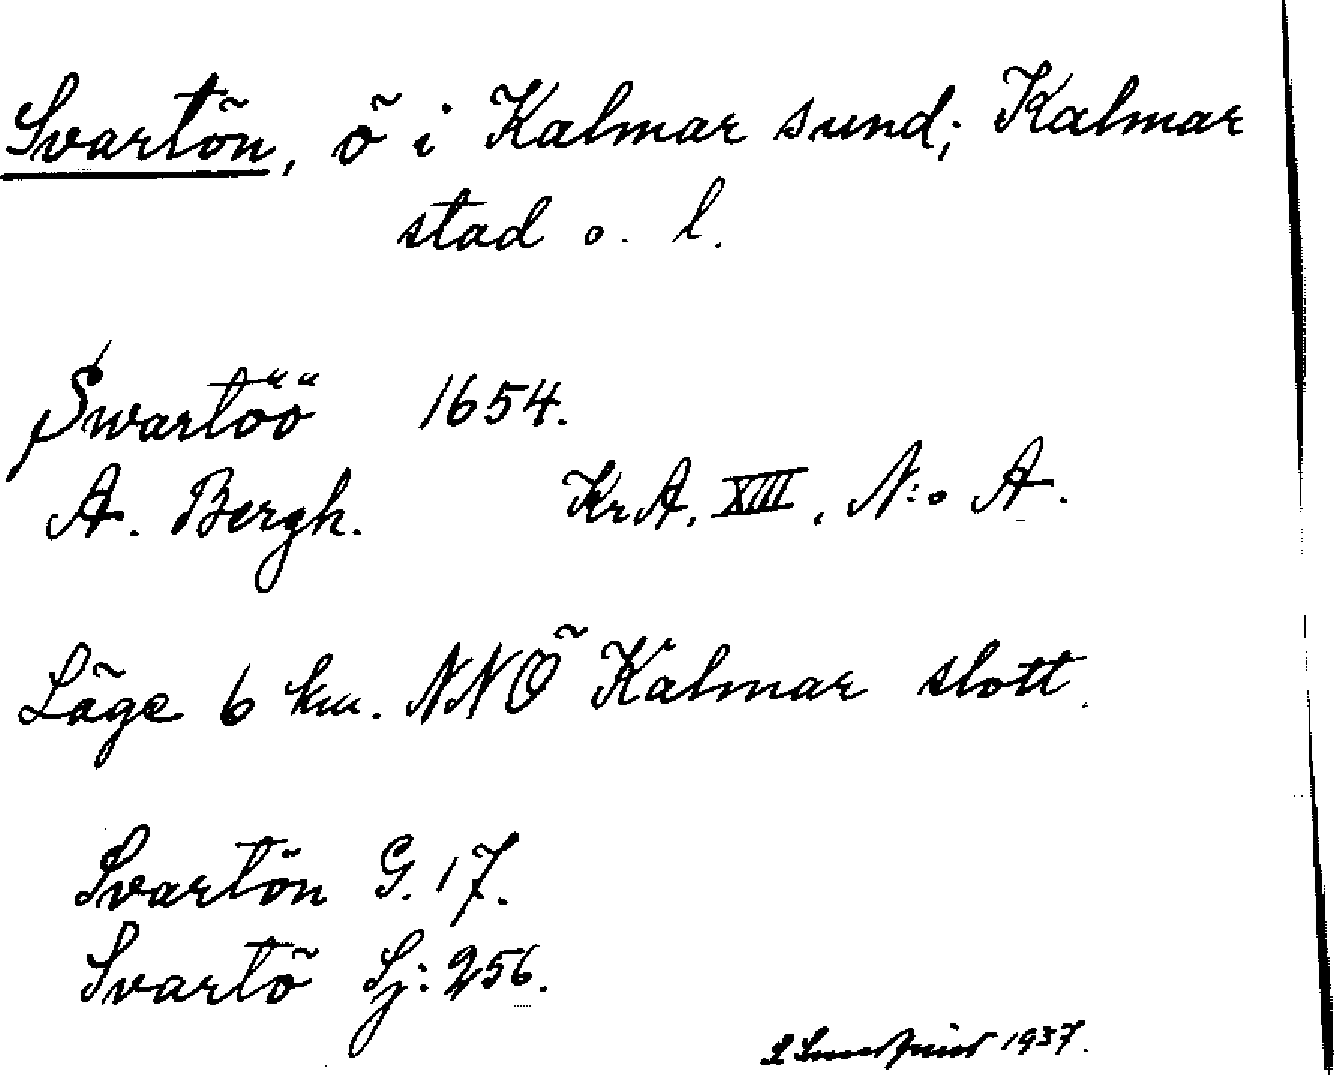 Svartön, ö i Kalmar sund; Kalmar
stad o. l.
Swartöö 1654.
A. Bergh. KrA. XIII, N:o A.
Läge 6 km. NNÖ Kalmar slott.
Svartön G. 17.
Svartö Sj: 256.
1937.